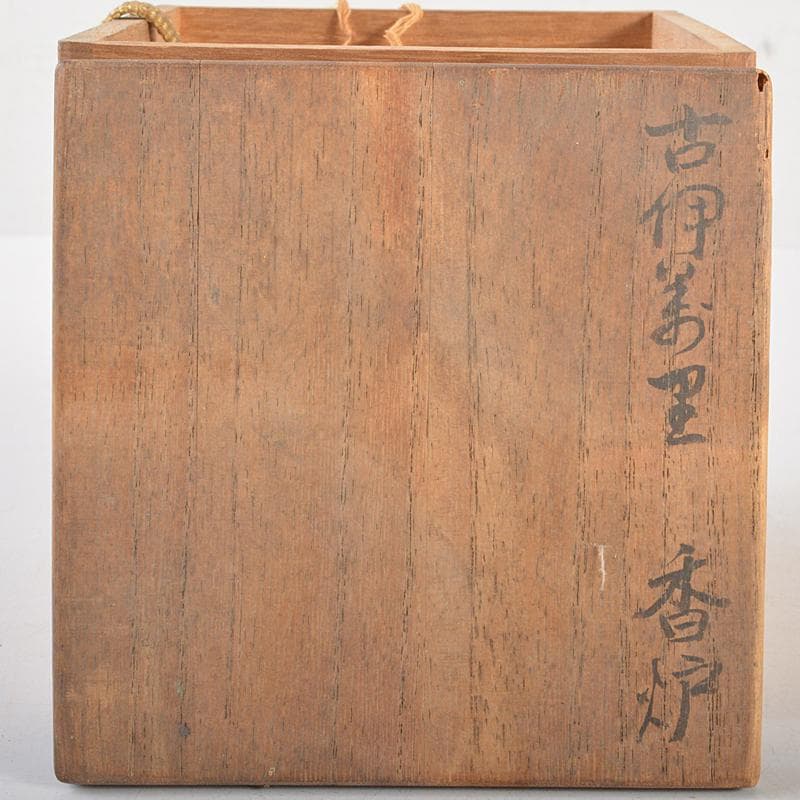 古伊萬里　香炉